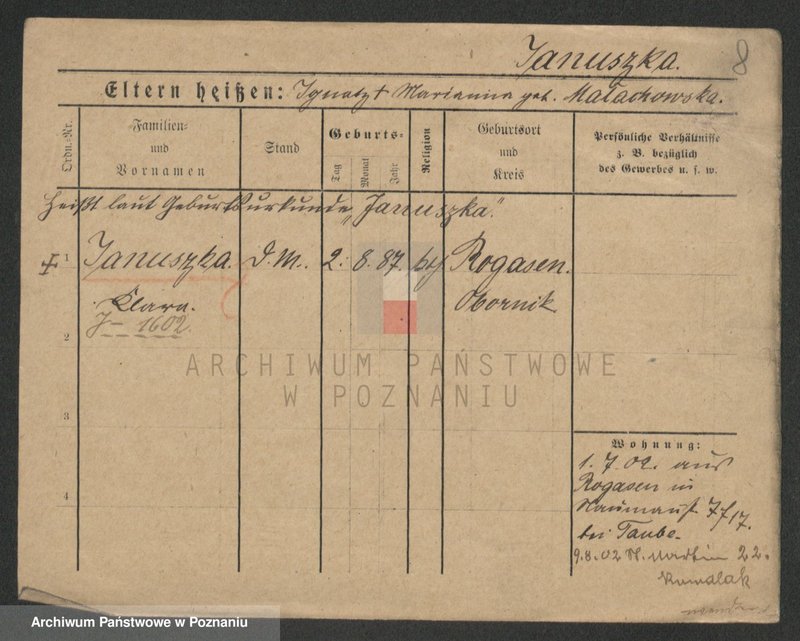 Januszka. 8
Eltern heißen: Ignatz + Marianna geb. Małachowska.
Ordn.-Nr.
Familien-
und
Vornamen
Stand
Geburts-
Tag
Monat
Jahr
Religion
Geburtsort
und
Kreis
Persönliche Verhältnisse
z. B. bezüglich
des Gewerbes u. s. w.
Heißt laut Geburtsurkunde „Januszka."
1 Januszka. D. M. 2. 8. 87. Rogasen.
Clara. Obornik
J- 1602.
2
ARCHIWUM PAŃSTWOWE
W POZNANIU
3
4
Wohnung:
1. 7. 02. aus
Rogasen in
Naumanst. 7/f 17.
bei Taube.
9.8.02 St. Martin 22.
Kowalak
Archiwum Państwowe w Poznaniu